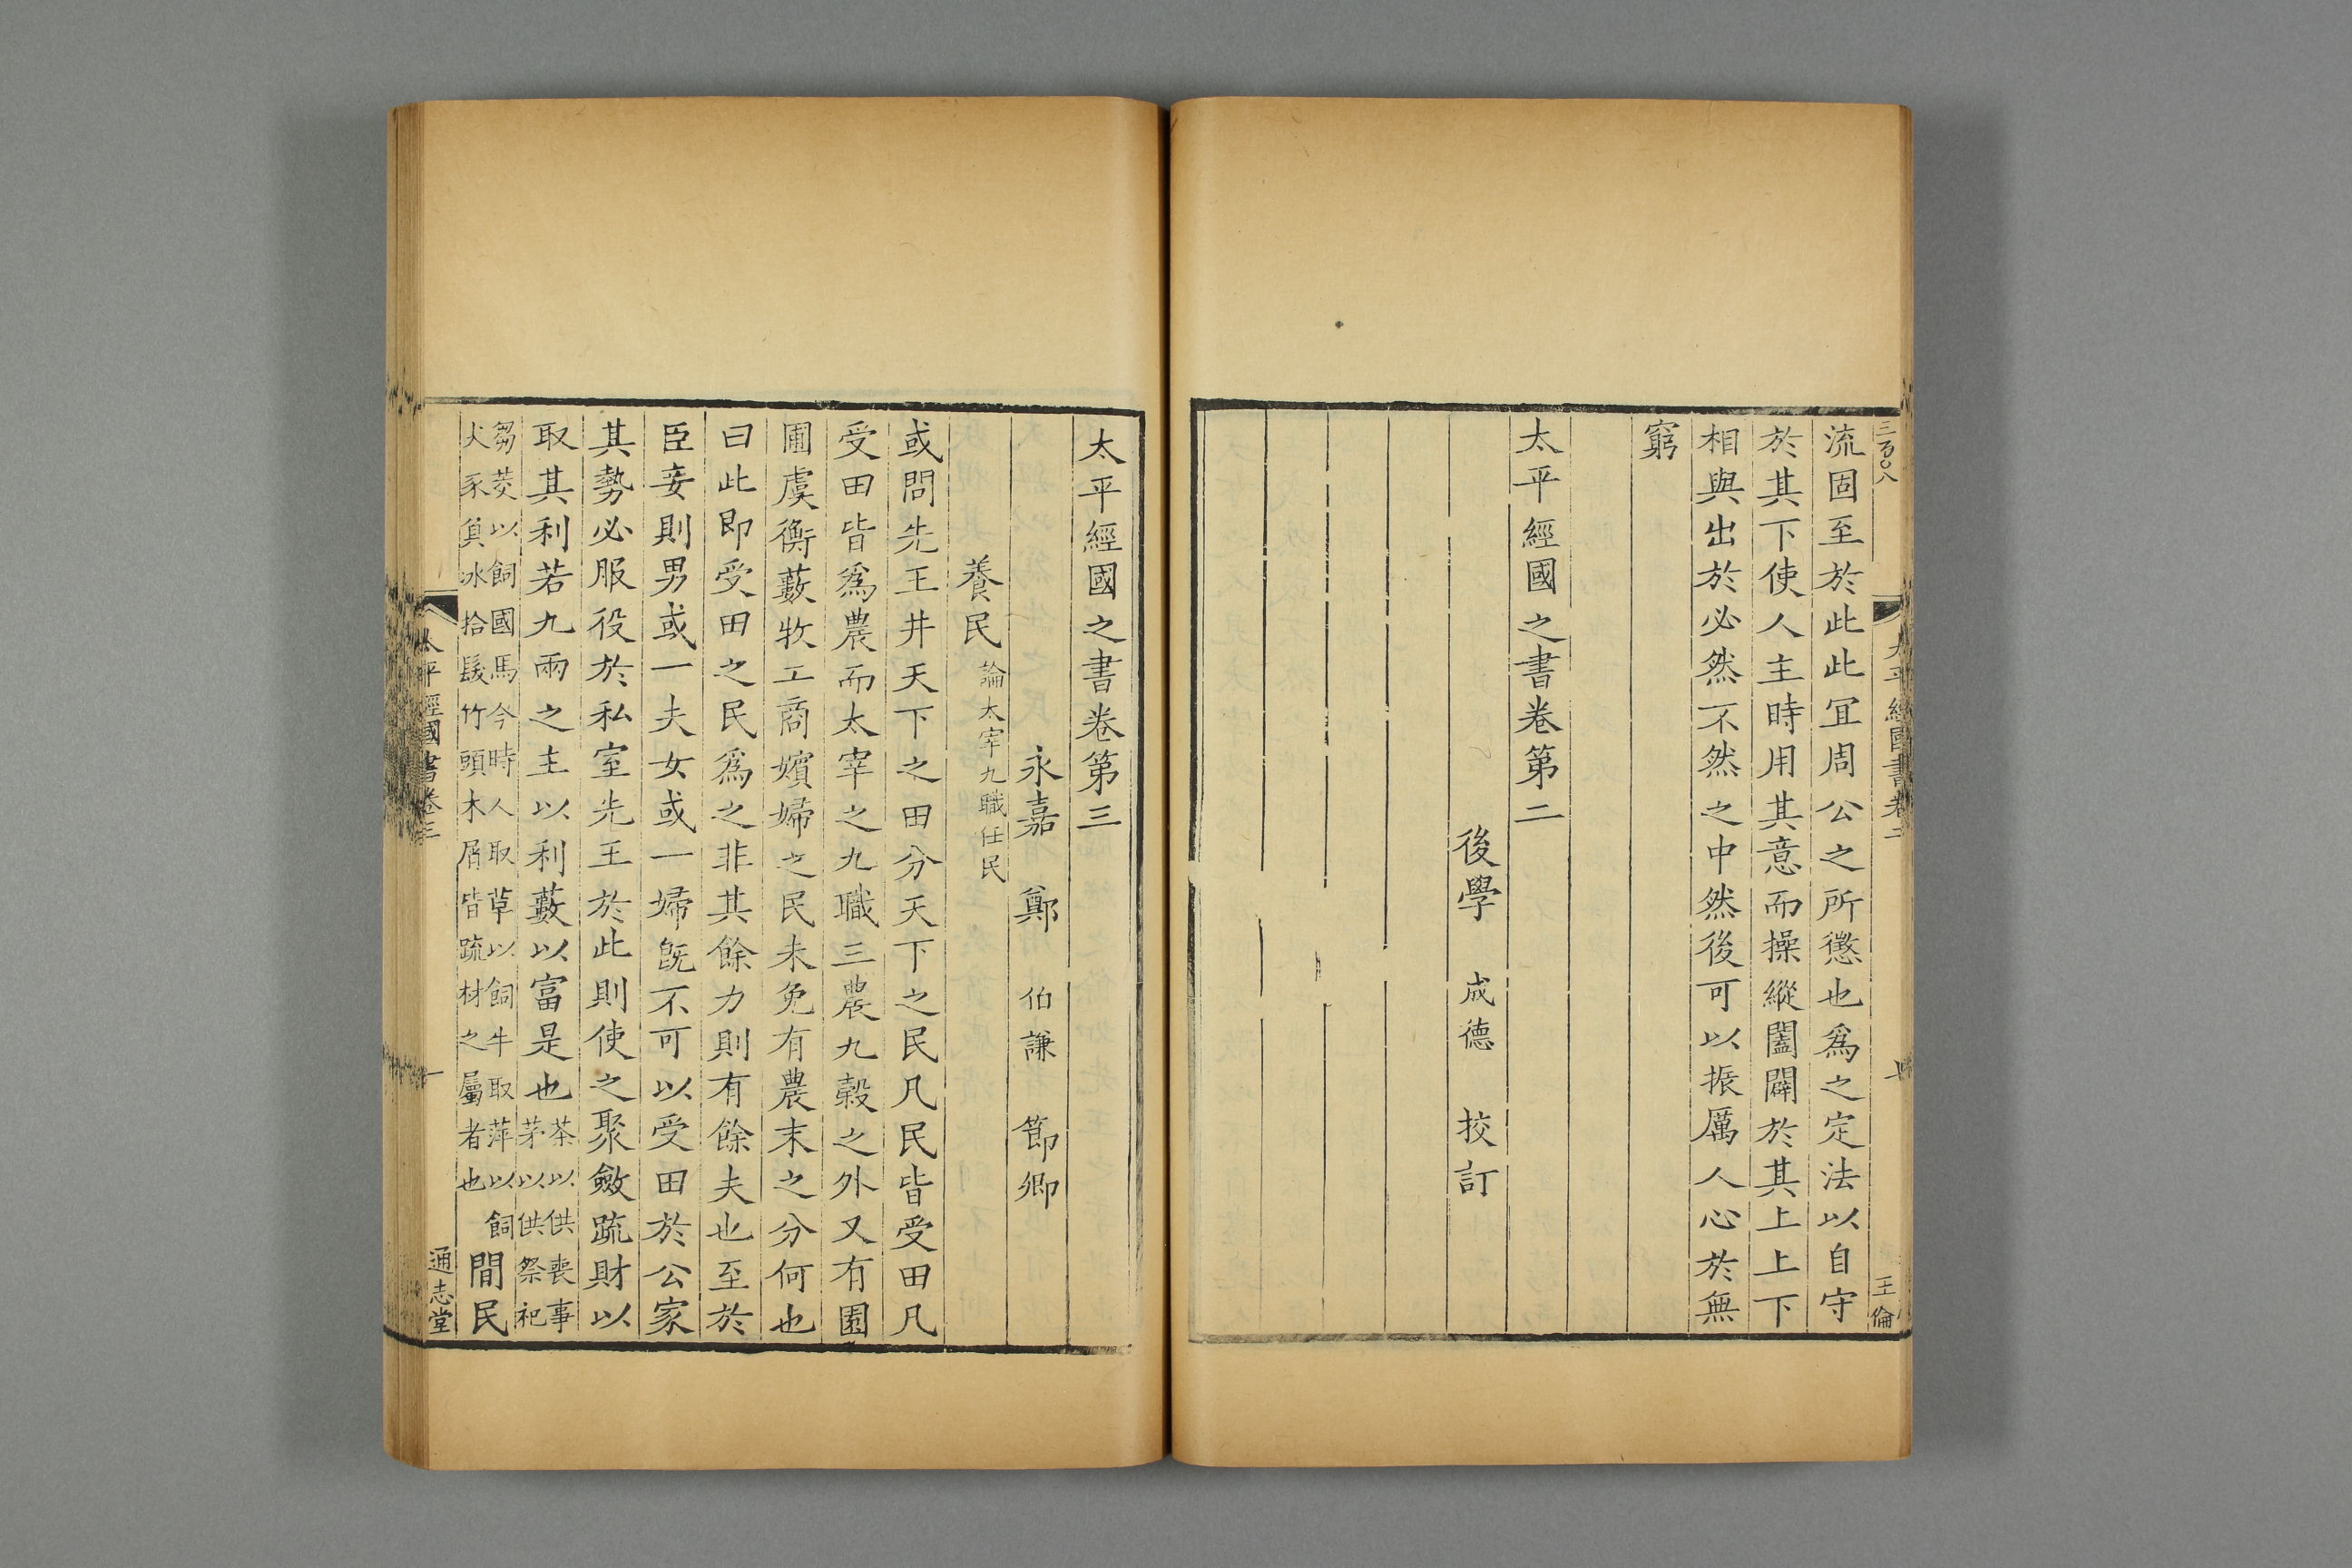 三百〇八
太平經國書卷二
王倫
流固至於此此冝周公之所懲也爲之定法以自守
於其下使人主時用其意而操縱闔闢於其上上下
相與出於必然不然之中然後可以振厲人心於無
窮
太平經國之書卷第二
後學 成德 挍訂
太平經國之書卷第三
永嘉 鄭 伯謙 節卿
養民 論太宰九職任民
或問先王井天下之田分天下之民凡民皆受田凡
受田皆爲農而太宰之九職三農九穀之外又有園
圃虞衡藪牧工商嬪婦之民未免有農末之分何也
曰此即受田之民爲之非其餘力則有餘夫也至於
臣妾則男或一夫女或一婦旣不可以受田於公家
其勢必服役於私室先王於此則使之聚斂疏財以
取其利若九兩之主以利藪以富是也 荼以供喪事
茅以供祭祀
芻茭以飼國馬今時人取草以飼牛取萍以飼
犬豕眞冰拾髮竹頭木屑皆疏材之屬者也 間民
太平經國書卷三
一
通志堂